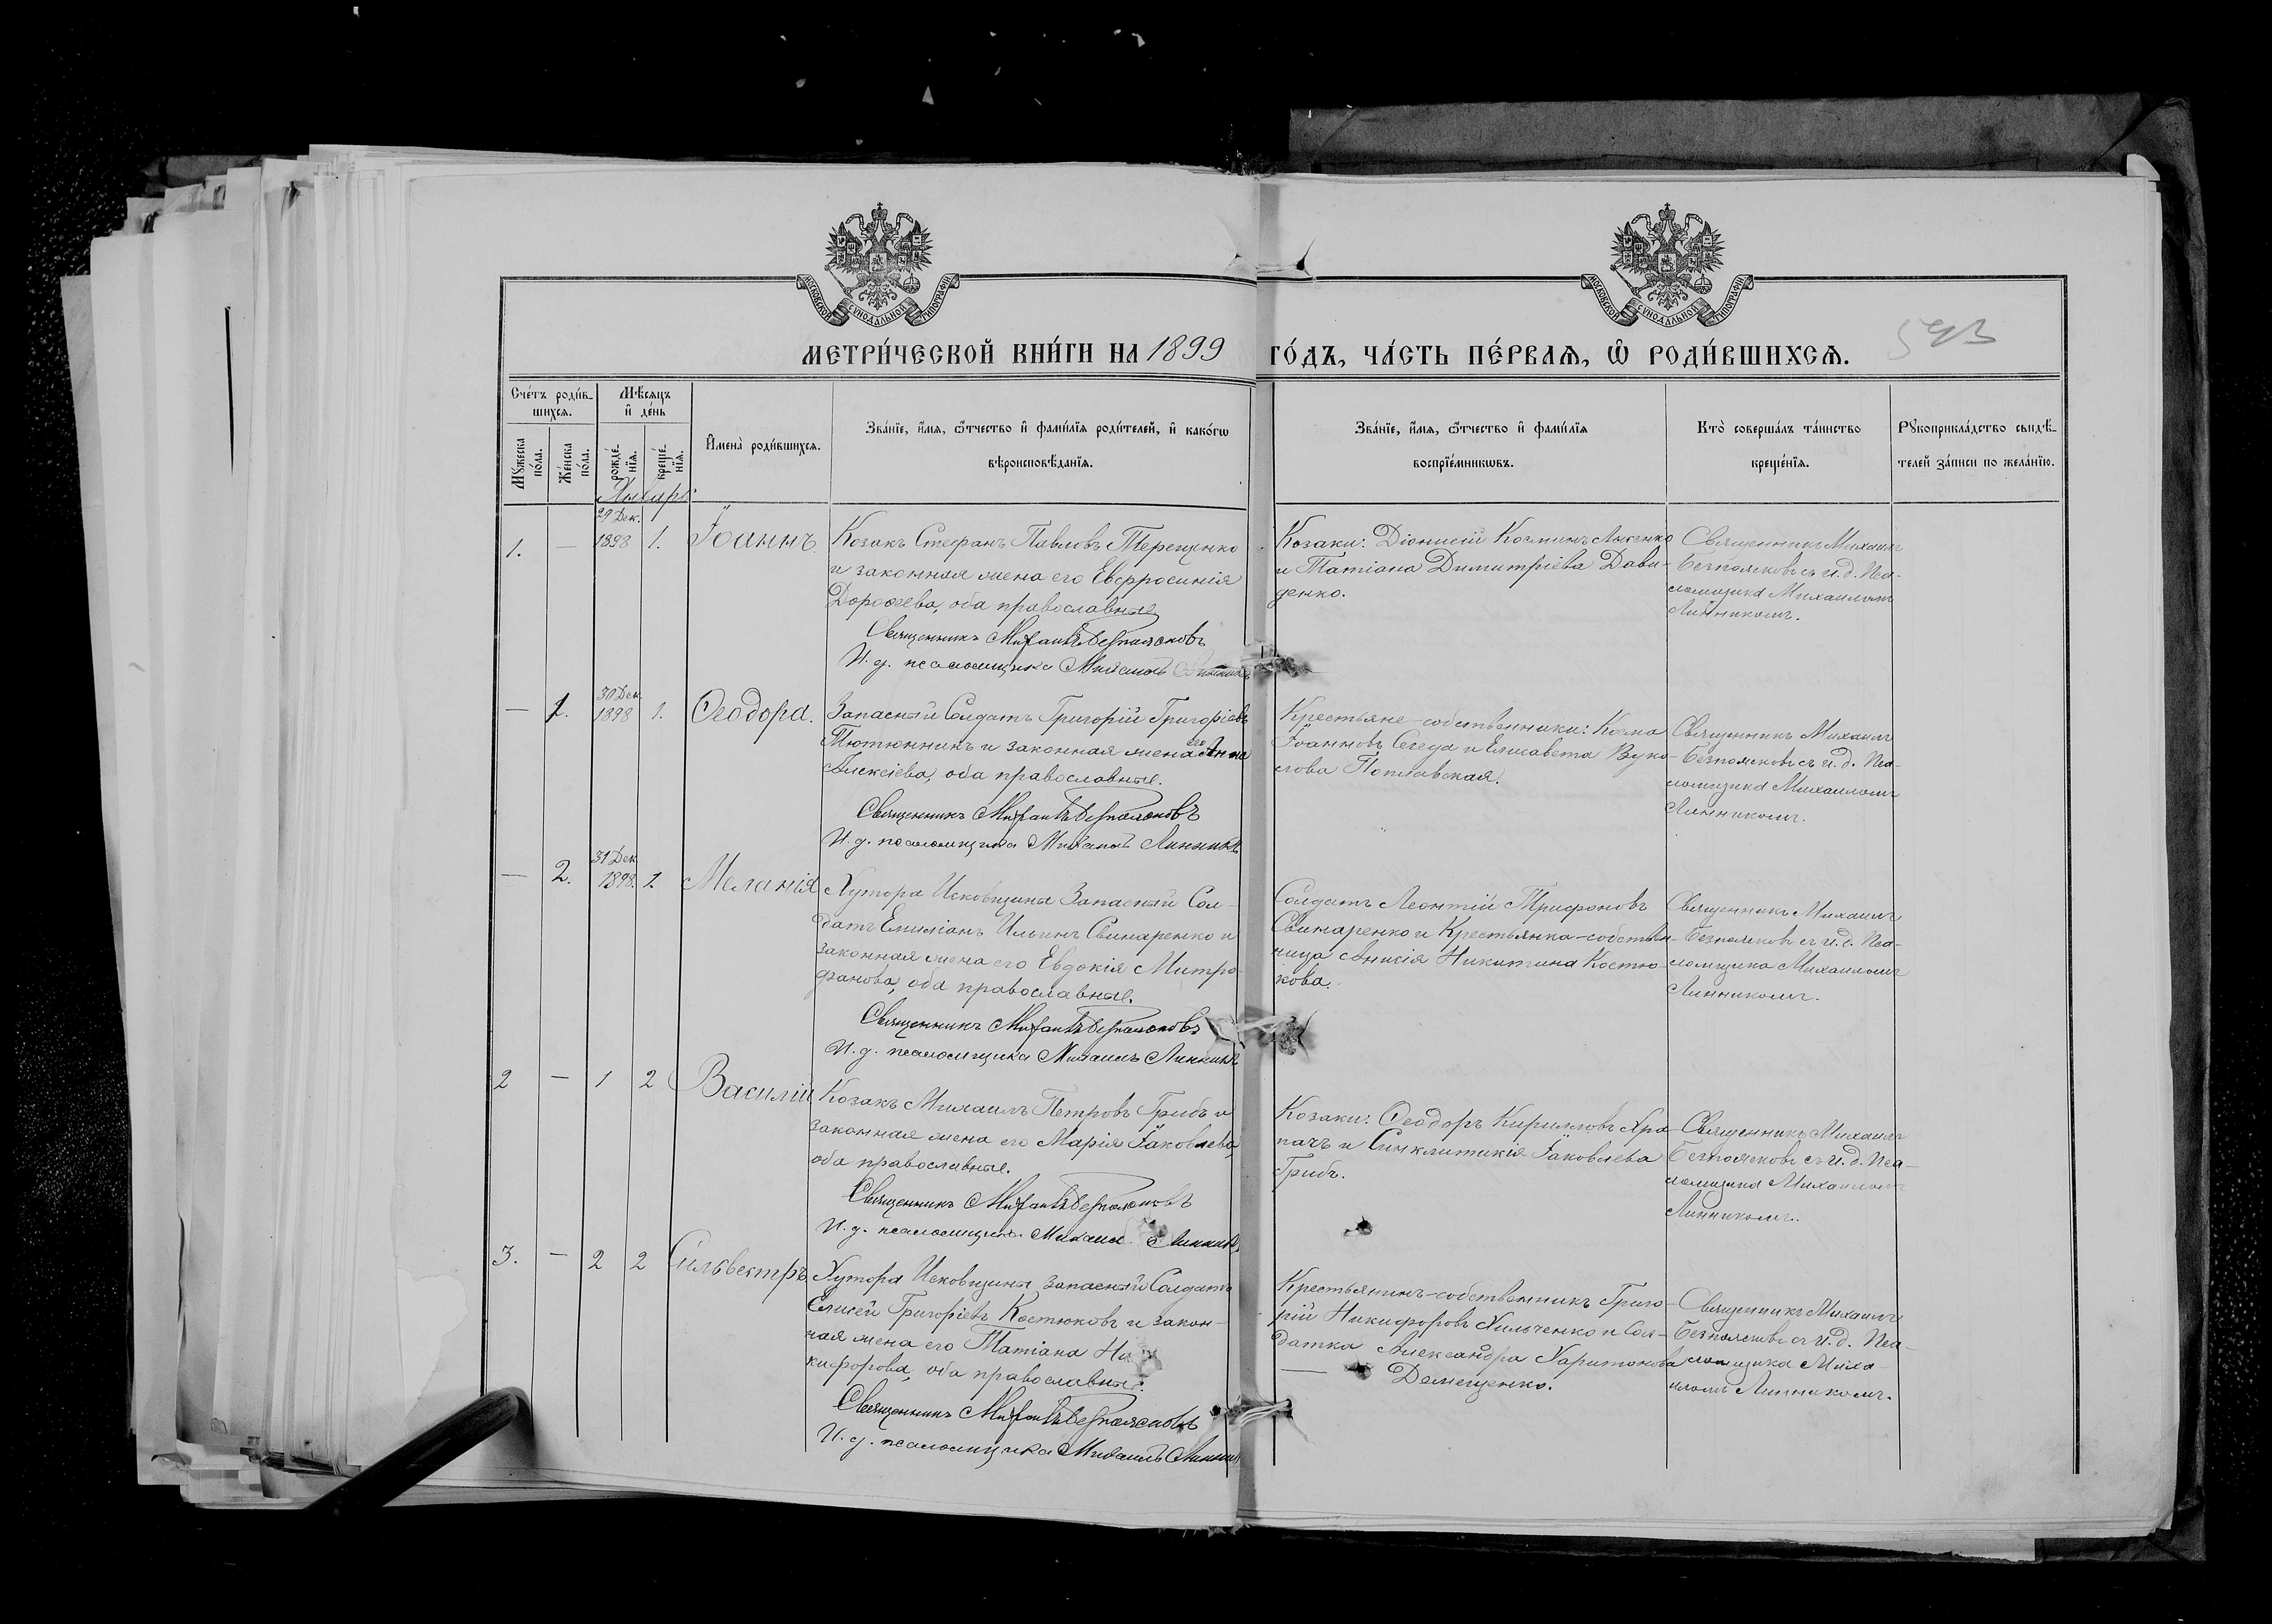 МОСКОВСКОЙ СѴНОДАЛЬНОЙ ТИПОГРАФІИ
МОСКОВСКОЙ СѴНОДАЛЬНОЙ ТИПОГРАФІИ
593
МЕТРИ́ЧЕСКОЙ КНИ́ГИ НА 1899 ГО́ДЪ, ЧА́СТЬ ПЕ́РВАѦ, Ѡ РОДИ́ВШИХСѦ.
Сче́тъ роди́в-
шихсѧ.
Мѣ́сѧцъ
и҆ де́нь
Мꙋ́жеска
по́ла.
Же́нска
по́ла.
рожде́-
нїѧ.
креще́-
нїѧ.
И҆мена̀ роди́вшихсѧ.
Зва́нїе, и҆́мѧ, ѻ҆́тчество и҆ фами́лїѧ роди́телей, и҆ како́гѡ
вѣроисповѣ́данїѧ.
Зва́нїе, и҆́мѧ, ѻ҆́тчество и҆ фами́лїѧ
воспрїе́мникѡвъ.
Кто̀ соверша́лъ та́инство
креще́нїѧ.
Рꙋкоприкла́дство свидѣ́-
телей за́писи по жела́нїю.
Январь
29 Дек.
1. — 1898 1. Іоаннъ.
Козакъ Стефанъ Павловъ Терещенко
и законная жена его Евфросинія
Дорофеева, оба православные
Священникъ Михаилъ Безпоясковъ
И. д. псаломщика Михаилъ Линникъ
Козаки: Діонисій Косминъ Лысенко
и Татіана Димитріева Дави-
денко.
Священникъ Михаилъ
Безпоясковъ съ и. д. Пса-
ломщика Михаиломъ
Линникомъ.
30 Дек.
— 1. 1898 1. Ѳеодора.
Запасный Солдатъ Григорій Григоріевъ
Тютюнникъ и законная жена его Анна
Алексіева, оба православные.
Священникъ Михаилъ Безпоясковъ
И. д. псаломщика Михаилъ Линникъ
Крестьяне-собственники: Косма
Іоанновъ Сегеда и Елисавета Вуко-
лова Поплавская.
Священникъ Михаилъ
Безпоясковъ съ и. д. Пса-
ломщика Михаиломъ
Линникомъ.
31 Дек.
— 2. 1898. 1. Меланія
Хутора Исковщины Запасный Сол-
датъ Емиліанъ Ильинъ Свинаренко и
законная жена его Евдокія Митро-
фанова, оба православные.
Священникъ Михаилъ Безпоясковъ
И. д. псаломщика Михаилъ Линникъ
Солдатъ Леонтій Трифоновъ
Свинаренко и Крестьянка-собствен-
ница Анисія Никитина Костю-
кова.
Священникъ Михаилъ
Безпоясковъ съ и. д. Пса-
ломщика Михаиломъ
Линникомъ.
2 — 1 2 Василій
Козакъ Михаилъ Петровъ Грибъ и
законная жена его Марія Іаковлева,
оба православные.
Священникъ Михаилъ Безпоясковъ
И. д. псаломщика Михаилъ Линникъ
Козаки: Ѳеодоръ Кирилловъ Хра-
пачъ и Синклитикія Іаковлева
Грибъ.
Священникъ Михаилъ
Безпоясковъ съ и. д. Пса-
ломщика Михаиломъ
Линникомъ.
3. — 2 2 Сильвестръ
Хутора Исковщины запасный Солдатъ
Елисей Григоріевъ Костюковъ и закон-
ная жена его Татіана Ни-
кифорова, оба православные.
Священникъ Михаилъ Безпоясковъ
И. д. псаломщика Михаилъ Линникъ
Крестьянинъ-собственникъ Григо-
рій Никифоровъ Хильченко и Сол-
датка Александра Харитонова
Демещенко.
Священникъ Михаилъ
Безпоясковъ съ и. д. Пса-
ломщика Миха-
иломъ Линникомъ.